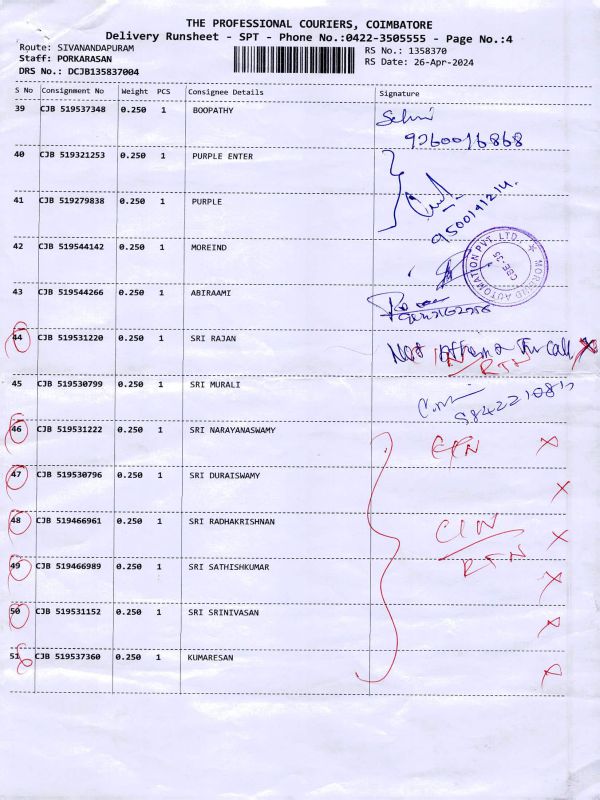 THE PROFESSIONAL COURIERS, COIMBATORE
Delivery Runsheet - SPT - Phone No.:0422-3505555 - Page No.:4
Route: SIVANANDAPURAM
RS No.: 1358370
Staff: PORKARASAN
RS Date: 26-Apr-2024
DRS No.: DCJB135837004
S No Consignment No Weight PCS Consignee Details Signature
39 CJB 519537348 0.250 1 BOOPATHY
40 CJB 519321253 0.250 1 PURPLE ENTER
41 CJB 519279838 0.250 1 PURPLE
9500141214.
42 CJB 519544142 0.250 1 MOREIND
MOREIND AUTOMATION PVT. LTD., ★
CBE-35
43 CJB 519544266 0.250 1 ABIRAAMI
44 CJB 519531220 0.250 1 SRI RAJAN Not the call X
RTN
45 CJB 519530799 0.250 1 SRI MURALI
46 CJB 519531222 0.250 1 SRI NARAYANASWAMY X
47 CJB 519530796 0.250 1 SRI DURAISWAMY X
48 CJB 519466961 0.250 1 SRI RADHAKRISHNAN CIN X
RTN
49 CJB 519466989 0.250 1 SRI SATHISHKUMAR X
50 CJB 519531152 0.250 1 SRI SRINIVASAN X
51 CJB 519537360 0.250 1 KUMARESAN X